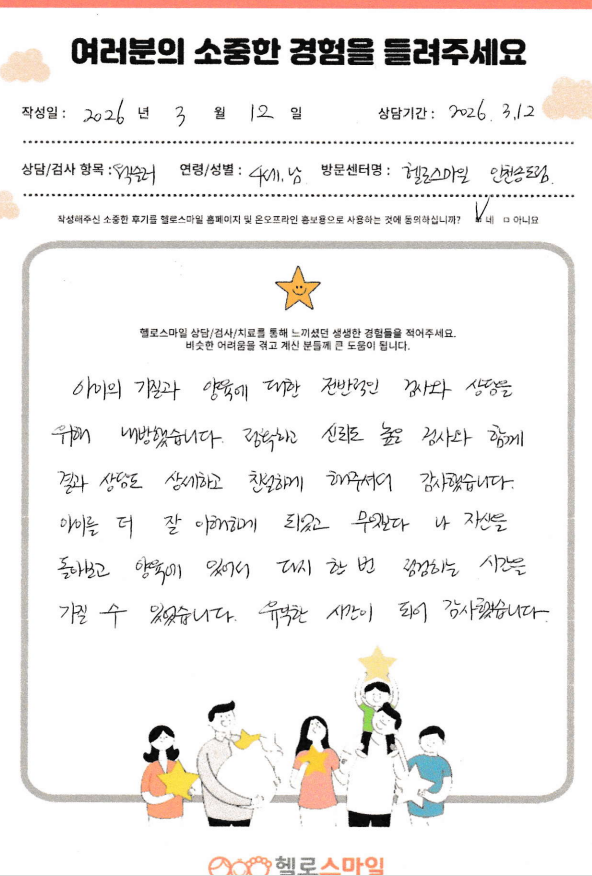 여러분의 소중한 경험을 들려주세요
작성일 : 2026 년 3 월 12 일 상담기간 : 2026. 3.12
상담/검사 항목 : 풀배터리 연령/성별 : 4세, 남 방문센터명 : 헬로스마일 인천송도점
작성해주신 소중한 후기를 헬로스마일 홈페이지 및 온오프라인 홍보용으로 사용하는 것에 동의하십니까? ㅁ 네 ㅁ 아니요
헬로스마일 상담/검사/치료를 통해 느끼셨던 생생한 경험들을 적어주세요.
비슷한 어려움을 겪고 계신 분들께 큰 도움이 됩니다.
아이의 기질과 양육에 대한 전반적인 검사와 상담을
위해 내방했습니다. 정확하고 신뢰도 높은 검사와 함께
결과 상담도 상세하고 친절하게 해주셔서 감사했습니다.
아이를 더 잘 이해하게 되었고 무엇보다 나 자신을
돌아보고 양육에 있어서 다시 한 번 점검하는 시간을
가질 수 있었습니다. 유익한 시간이 되어 감사했습니다.
헬로스마일